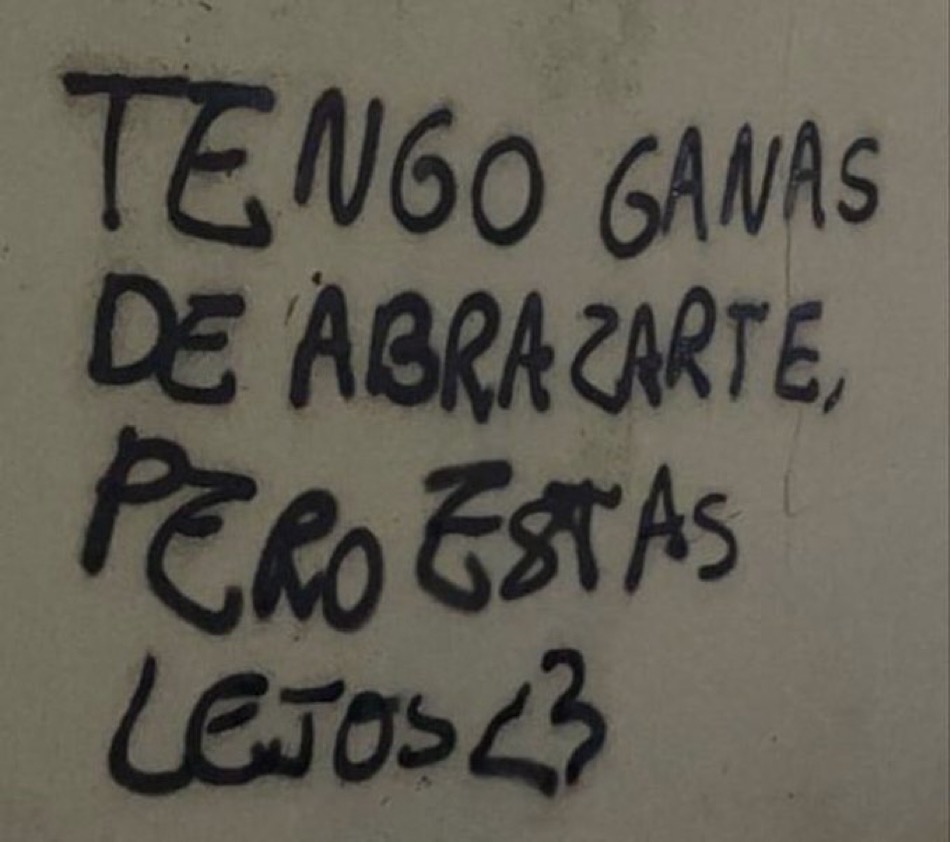 TENGO GANAS
DE ABRAZARTE,
PERO ESTAS
LEJOS <3